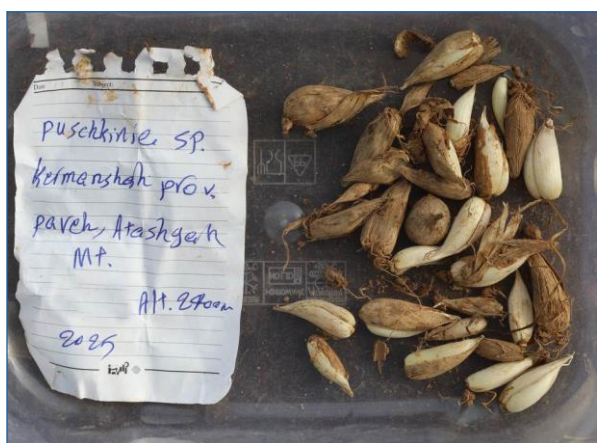 puschkinia sp.
Kermanshah prov.
paveh, Atashgah
Mt.
Alt. 2400m
2025